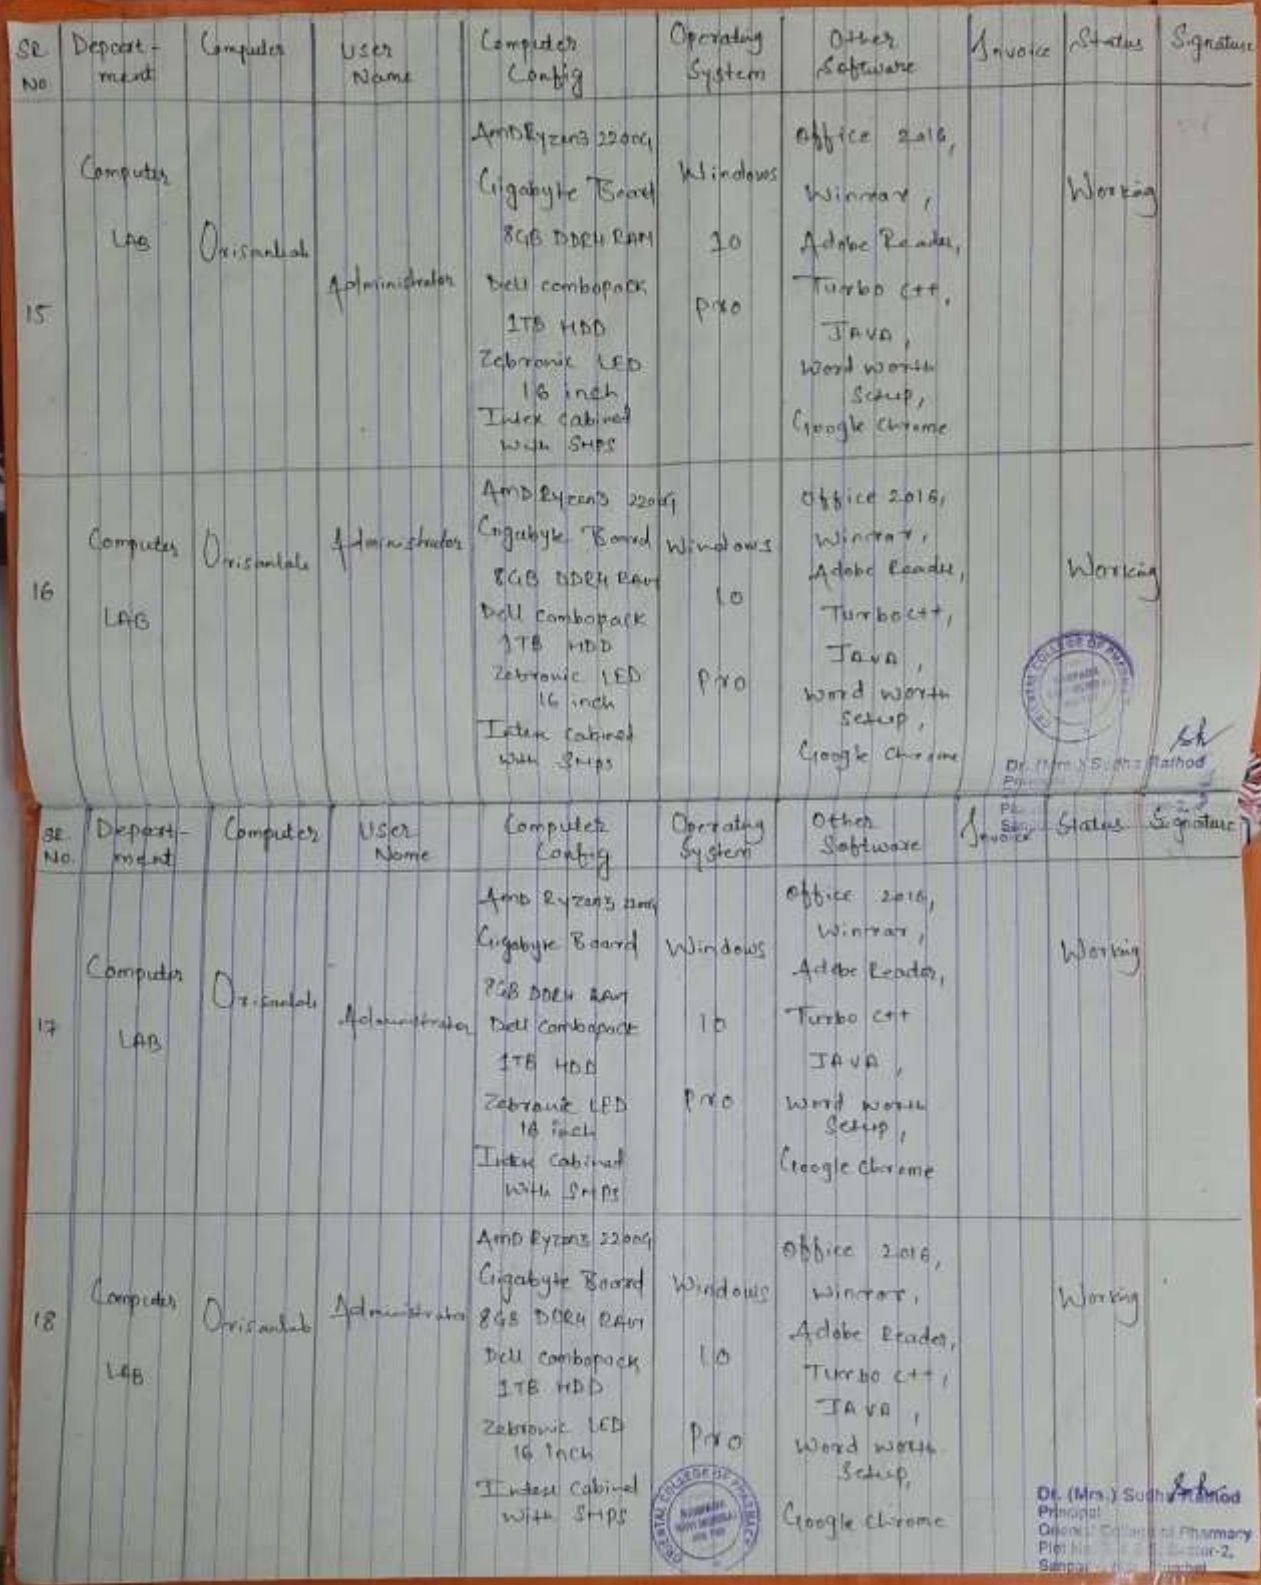 SR No
Depart-ment
Computer
User Name
Computer Config
Operating System
Other Software
Invoice
Status
Signature
15
Computer
LAB
Orisanlab
Administrator
AMD Ryzen3 2200G
Gigabyte Board
8GB DDR4 RAM
Dell combopack
1TB HDD
Zebronic LED
16 inch
Intex Cabinet
With SMPS
Windows
10
Pro
Office 2016,
Winrar,
Adobe Reader,
Turbo C++,
JAVA,
Word worth
Setup,
Google Chrome
Working
16
Computer
LAB
Orisanlab
Administrator
AMD Ryzen3 2200G
Gigabyte Board
8GB DDR4 RAM
Dell Combopack
1TB HDD
Zebronic LED
16 inch
Intex Cabinet
With SMPS
Windows
10
Pro
Office 2016,
Winrar,
Adobe Reader,
Turbo C++,
JAVA,
Word worth
Setup,
Google Chrome
Working
ORIENTAL COLLEGE OF PHARMACY
Dr. (Mrs.) Sudha Rathod
SR. No.
Depart-ment
Computer
User Name
Computer Config
Operating System
Other Software
Invoice
Status
Signature
17
Computer
LAB
Orisanlab
Administrator
AMD Ryzen3 2200G
Gigabyte Board
8GB DDR4 RAM
Dell Combopack
1TB HDD
Zebronic LED
16 inch
Intex Cabinet
With SMPS
Windows
10
Pro
Office 2016,
Winrar,
Adobe Reader,
Turbo C++
JAVA,
Word worth
Setup,
Google Chrome
Working
18
Computer
LAB
Orisanlab
Administrator
AMD Ryzen3 2200G
Gigabyte Board
8GB DDR4 RAM
Dell Combopack
1TB HDD
Zebronic LED
16 inch
Intex Cabinet
With SMPS
Windows
10
Pro
Office 2016,
Winrar,
Adobe Reader,
Turbo C++,
JAVA,
Word worth
Setup,
Google Chrome
Working
ORIENTAL COLLEGE OF PHARMACY
Dr. (Mrs.) Sudha Rathod
Principal
Oriental College of Pharmacy
Plot No. Sector-2,